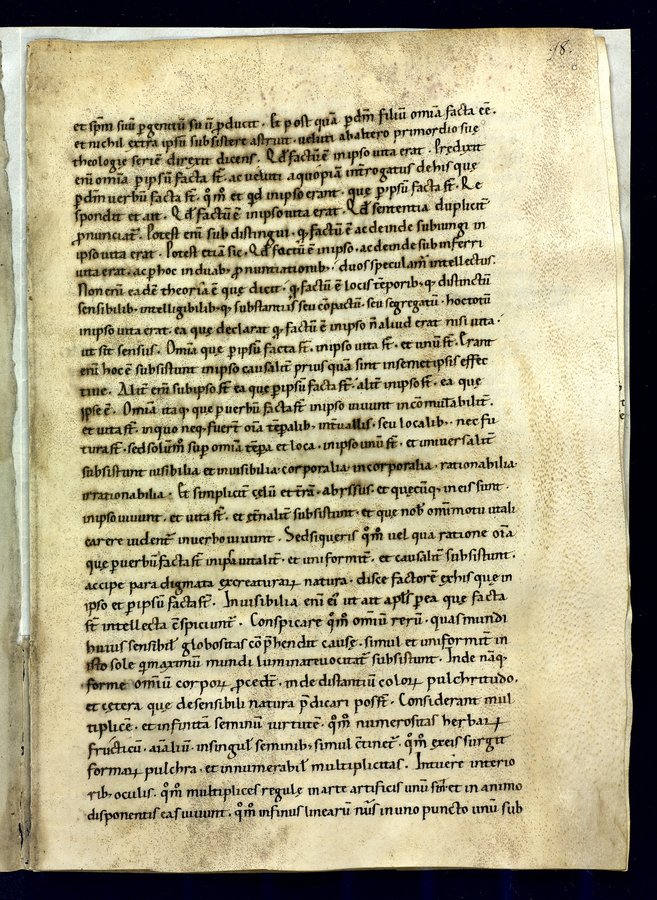 98.
et spm̄ suū p̄ genitū suū p̄ducit. Et post quā p̄dm̄ filiū omīa facta eē.
et nichil extra ipsū subsistere astruit. veluti ab altero primordio suę
theologie seriē direxit dicens. Qd̄ factū ē in ipso vita erat. Predixit
enī omīa p̄ ipsū facta st̄. ac veluti a quopiā int̄rogatus de his quę
p̄ dm̄ verbū facta st̄. qm̄ et qd in ipso erant. quę p̄ ipsū facta st̄. Re
spondit et ait. Qd̄ factū ē in ipso vita erat. Qd̄ sententia duplicit̄
p̄nunciat̄. Potest enī sub distingui. qd̄ factū ē ac deinde subiungi in
ipso vita erat. Potest etiā sic. Qd̄ factū ē in ipso. ac deinde sub inferri
vita erat. ac p̄ hoc in duab; p̄nuntiationib; duos speculam̄ intellectus.
Non enī eadē theoria ē que dicit. qd̄ factū ē locis tēporib; q; distinctū
sensibilib; intelligibilib; q; substantiis seu cōpactū. seu segregatū. hoc totū
in ipso vita erat. ea quę declarat qd̄ factū ē in ipso ñ aliud erat nisi vita.
ut sit sensus. Omīa que p̄ ipsū facta st̄. in ipso vita st̄. et unū st̄. Erant
enī hoc ē subsistunt in ipso causalit̄ prius quā sint in semet ipsis effec
tiue. Alit̄ enī sub ipso st̄ ea que p̄ ipsū facta st̄. alit̄ in ipso st̄. ea quę
ipse ē. Omīa itaq; que p̄ verbū facta st̄ in ipso uiuunt incōmutabilit̄.
et vita st̄. in quo neq; fuer̄t oīa tēpalib; int̄uallis. seu localib; nec fu
tura st̄. sed solūm̄ sup̄ omīa tēpa et loca. in ipso unū st̄. et uniuersalit̄
subsistunt uisibilia et inuisibilia. corporalia. incorporalia. rationabilia.
irrationabilia. Et simplicit̄ cęlū et t̄rā. abyssus. et quęcūq; in eis sunt.
in ipso uiuunt. et vita st̄. et et̄nalit̄ subsistunt. et que nob̄ omī motu uitali
carere uident̄ in verbo uiuunt. Sed si queris qm̄ vel qua ratione oīa
quę p̄ uerbū facta st̄ in ip̄a vitalit̄. et uniformit̄. et causalit̄ subsistunt.
accipe para digmata ex creaturaꝝ natura. disce factorē ex his quę in
ipso et p̄ ipsū facta st̄. Inuisibilia enī ei ut ait apl̄s p̄ ea quę facta
st̄ intellecta cspiciunt̄. Conspicare qm̄ omiū rerū. quas mundi
huius sensibil̄ globositas cōp̄hendit cause. simul et uniformit̄ in
isto sole q maximū mundi luminare uocitat̄ subsistunt. Inde nāq;
forme omiū corpoꝝ p̄cedt̄. inde distantiū coloꝝ pulchritudo.
et cętera que de sensibili natura p̄dicari post̄. Considerant mul
tiplicē. et infinitā seminū uirtutē. qm̄ numerositas herbaꝝ
fructicū. aīaliū. in singul̄ seminib; simul c̄tinet̄. qm̄ ex eis surgit
formaꝝ pulchra. et innumerabil̄ multiplicitas. Intuere interio
rib; oculis. qm̄ multiplices regulę in arte artificis unū st̄ et in animo
disponentis eas uiuunt. qm̄ infinus linearū nūs in uno puncto unū sub